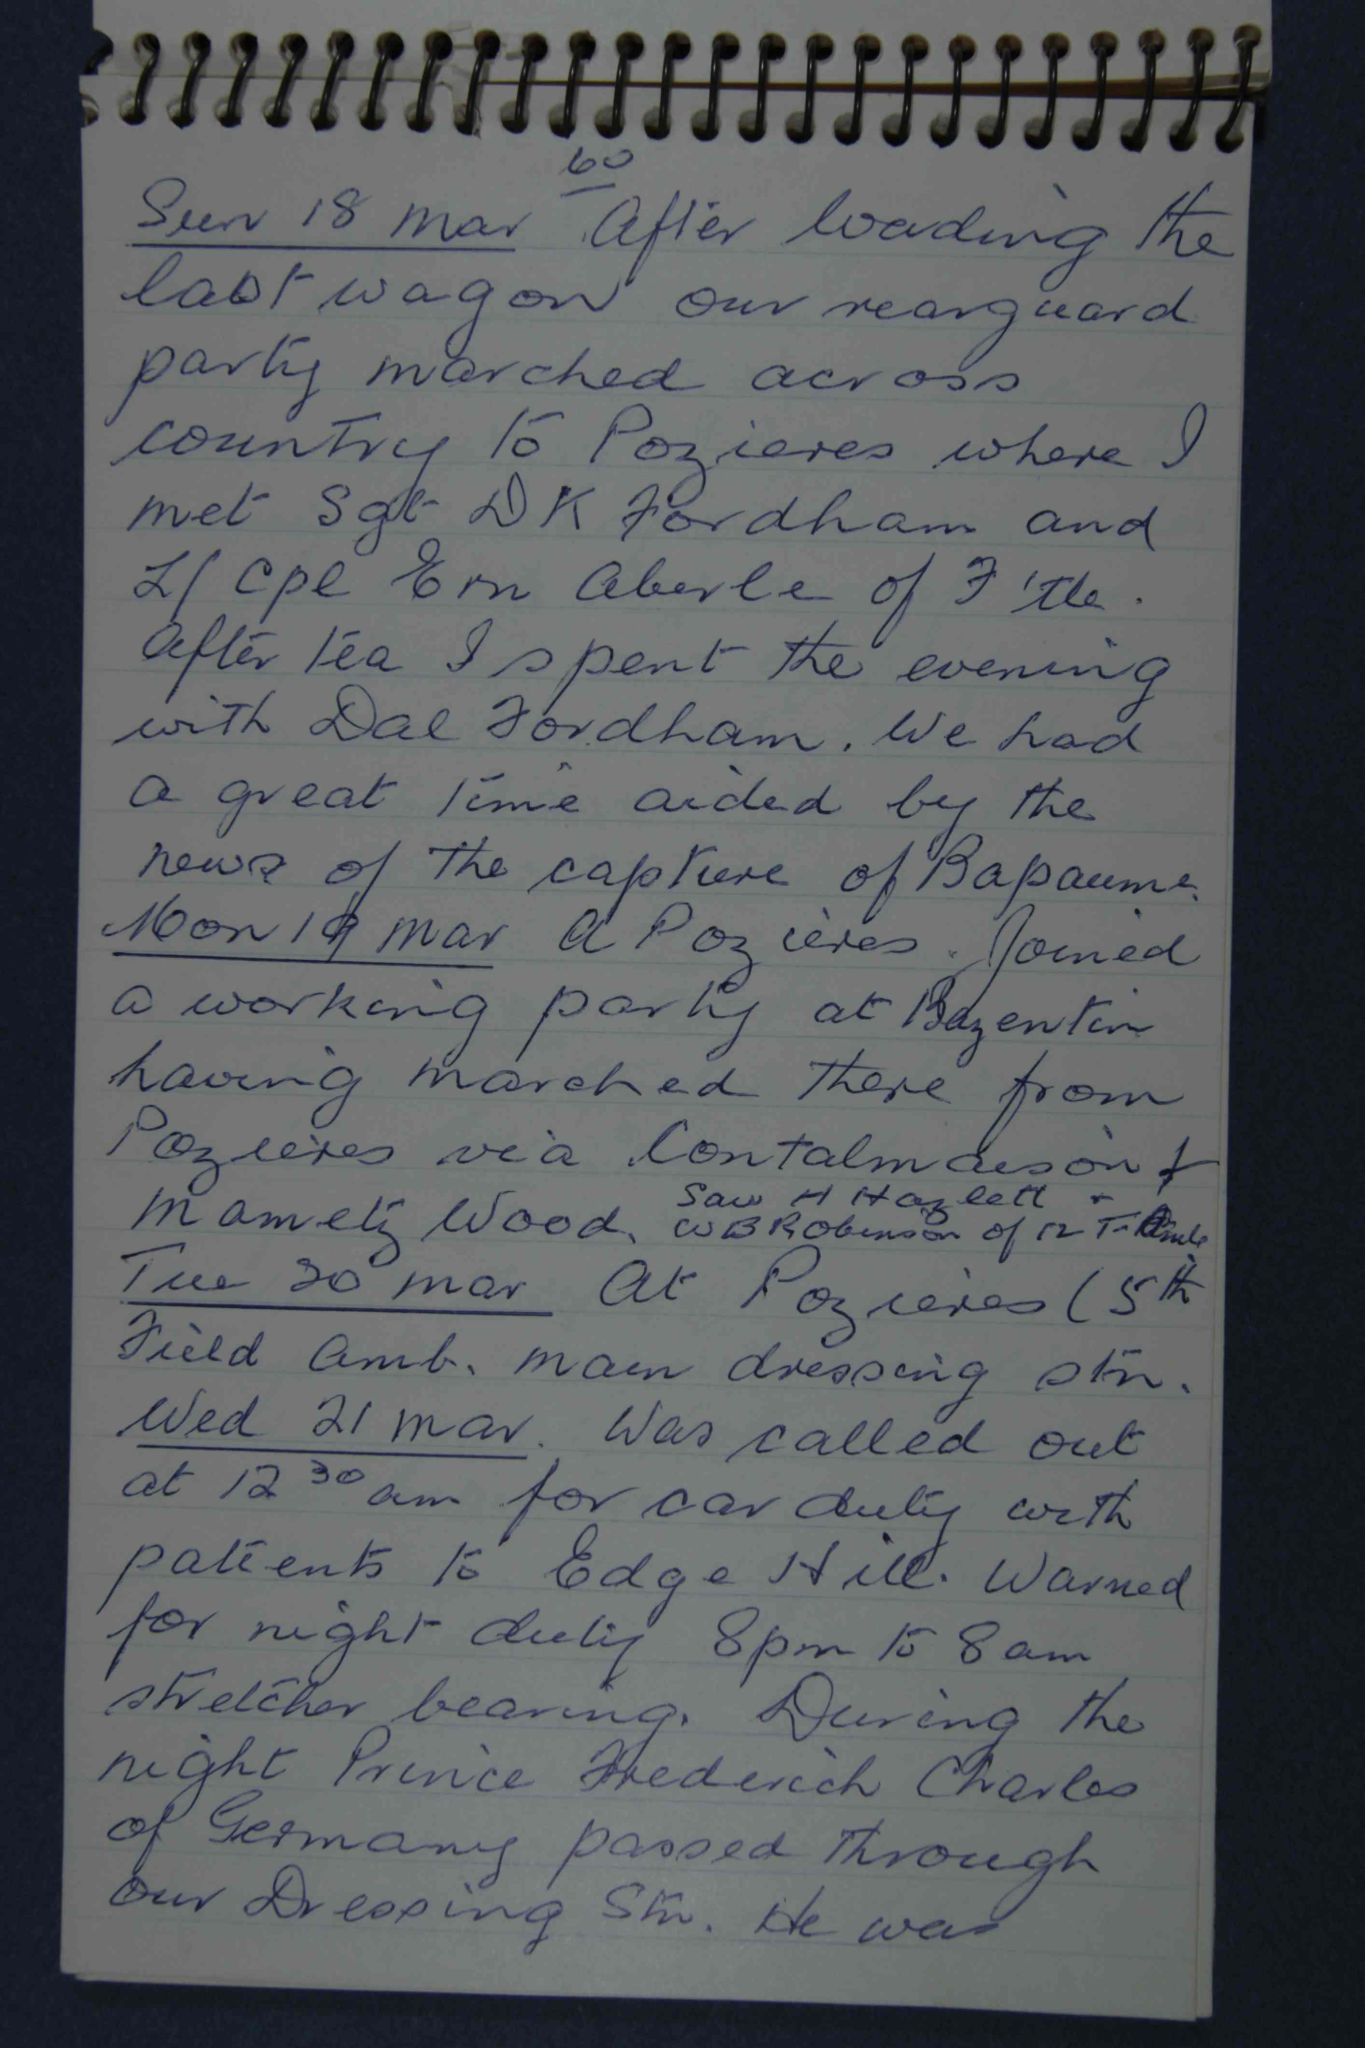 60
Sun 18 Mar After loading the
last wagon our rearguard
party marched across
country to Pozieres where I
met Sgt D K Fordham and
L/Cpl Ern Aberle of F'tle.
After tea I spent the evening
with Dal Fordham. We had
a great time aided by the
news of the capture of Bapaume.
Mon 19 Mar A Pozieres. Joined
a working party at Bazentin
having marched there from
Pozieres via Contalmaison &
Mametz Wood. Saw H Hazlett +
W B Robinson of 12 T
Tue 20 Mar At Pozieres (5th
Field Amb. main dressing stn.
Wed 21 Mar. Was called out
at 12 30 am for car duty with
patients to Edge Hill. Warned
for night duty 8pm to 8am
stretcher bearing. During the
night Prince Frederich Charles
of Germany passed through
our Dressing Stn. He was